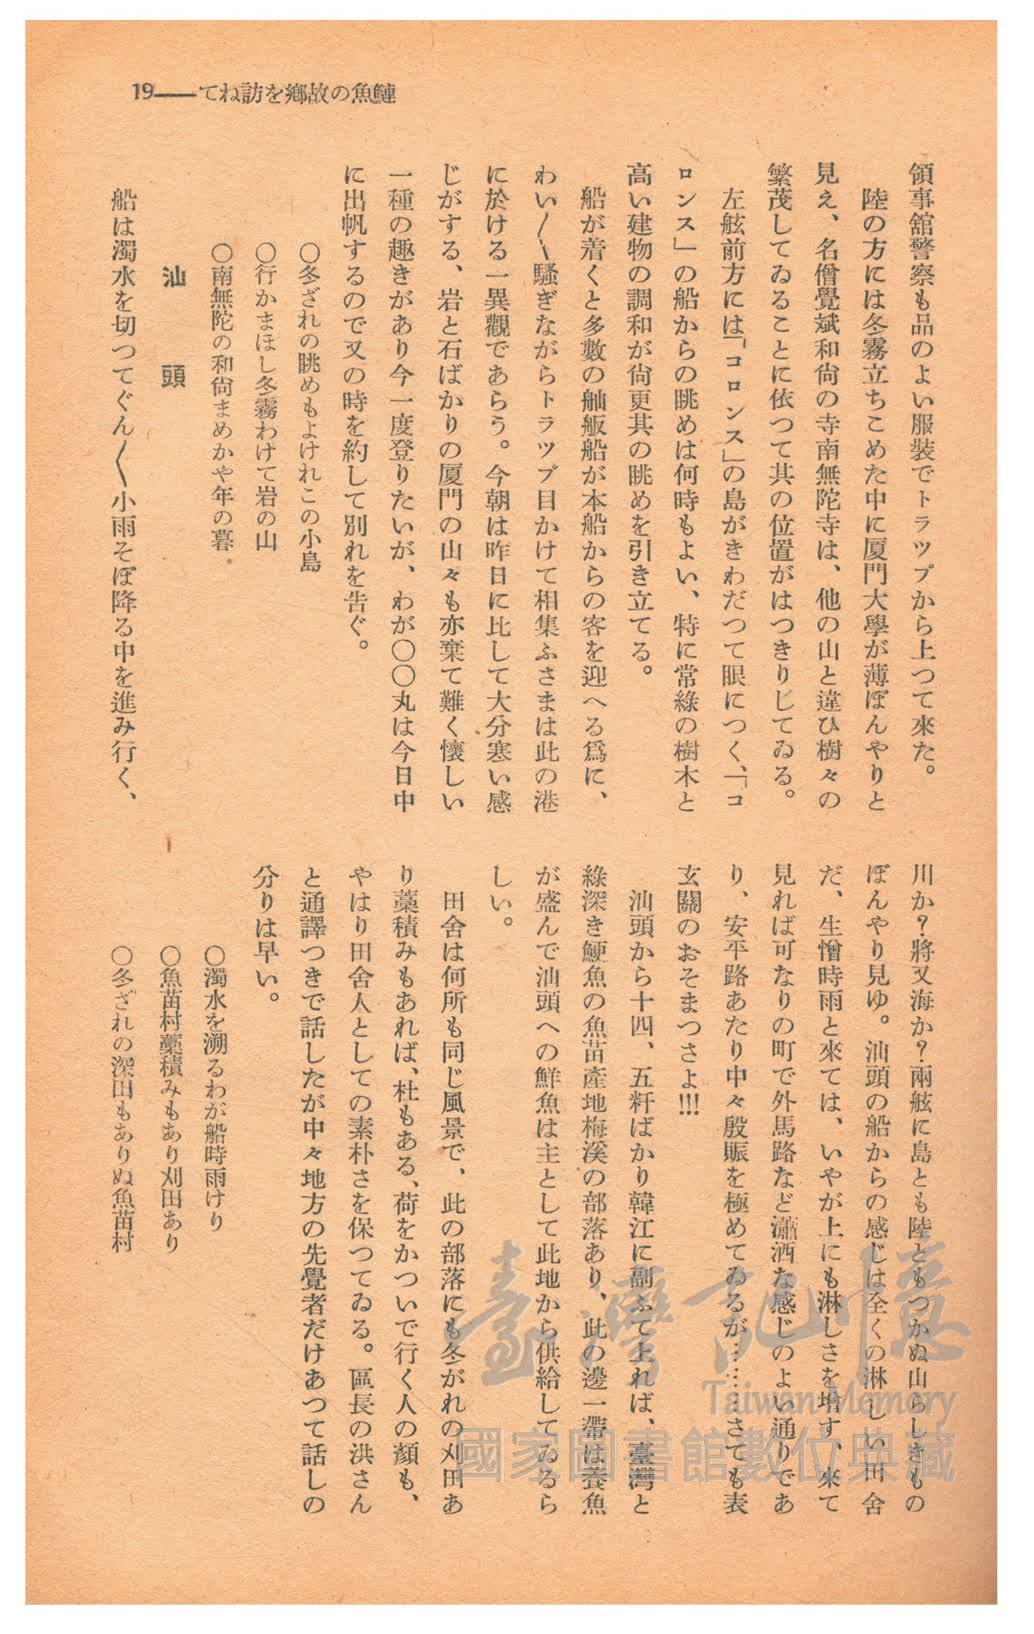 19——てね訪を鄉故の魚鰱
領事舘警察も品のよい服裝でトラツプから上つて來た。
陸の方には冬霧立ちこめた中に厦門大學が薄ぼんやりと
見え、名僧覺斌和尙の寺南無陀寺は、他の山と違ひ樹々の
繁茂してゐることに依つて其の位置がはつきりしてゐる。
左舷前方には「コロンス」の島がきわだつて眼につく、「コ
ロンス」の船からの眺めは何時もよい、特に常綠の樹木と
高い建物の調和が尙更其の眺めを引き立てる。
船が着くと多數の舢舨船が本船からの客を迎へる爲に、
わい〱騷ぎながらトラツプ目かけて相集ふさまは此の港
に於ける一異觀であらう。今朝は昨日に比して大分寒い感
じがする、岩と石ばかりの厦門の山々も亦棄て難く懷しい
一種の趣きがあり今一度登りたいが、わが〇〇丸は今日中
に出帆するので又の時を約して別れを吿ぐ。
〇冬ざれの眺めもよけれこの小島
〇行かまほし冬霧わけて岩の山
〇南無陀の和尙まめかや年の暮
汕頭
船は濁水を切つてぐん〱小雨そぼ降る中を進み行く、
川か？將又海か？兩舷に島とも陸ともつかぬ山らしきもの
ぼんやり見ゆ。汕頭の船からの感じは全くの淋しい田舍
だ、生憎時雨と來ては、いやが上にも淋しさを增す、來て
見れば可なりの町で外馬路など瀟洒な感じのよい通りであ
り、安平路あたり中々殷賑を極めてゐるが……さても表
玄關のおそまつさよ!!!
汕頭から十四、五粁ばかり韓江に副ふて上れば、臺灣と
綠深き鯁魚の魚苗產地梅溪の部落あり、此の邊一帶は養魚
が盛んで汕頭への鮮魚は主として此地から供給してゐるら
しい。
田舍は何所も同じ風景で、此の部落にも冬がれの刈田あ
り藁積みもあれば、杜もある、荷をかついで行く人の顏も、
やはり田舍人としての素朴さを保つてゐる。區長の洪さん
と通譯つきで話したが中々地方の先覺者だけあつて話しの
分りは早い。
〇濁水を溯るわが船時雨けり
〇魚苗村藁積みもあり刈田あり
〇冬ざれの深田もありぬ魚苗村
臺灣記憶
Taiwan Memory
國家圖書館數位典藏